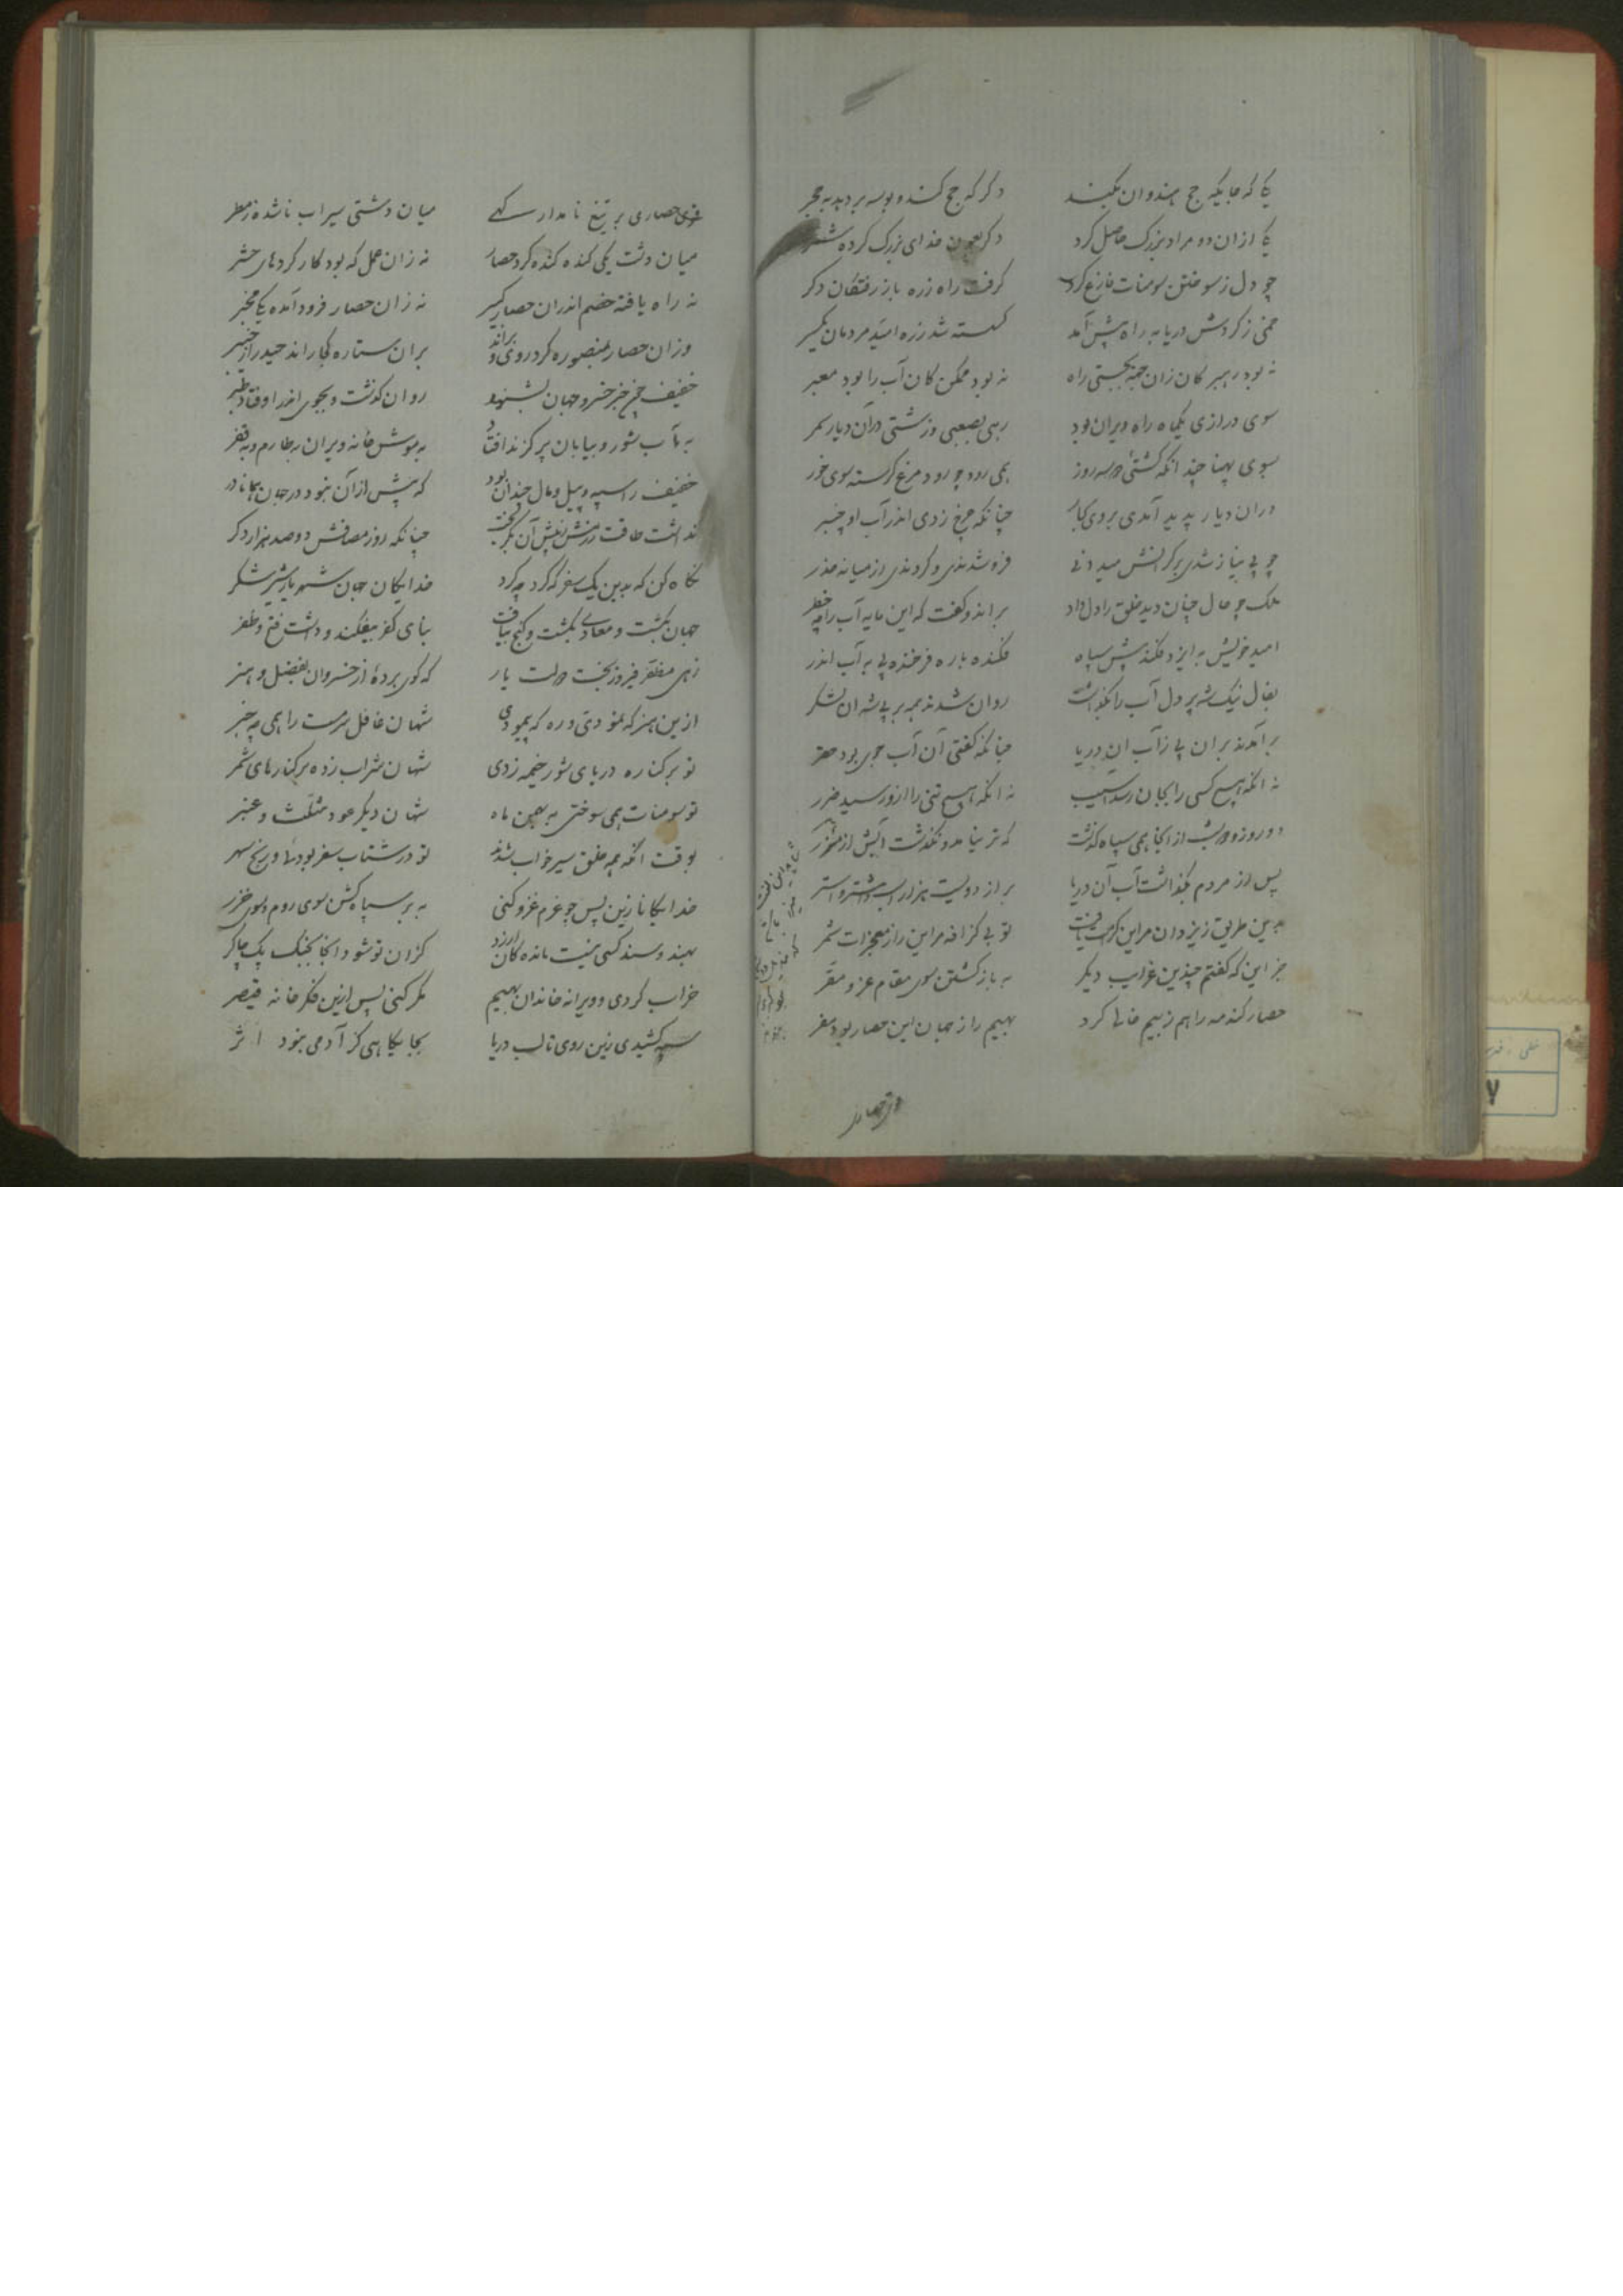 یکی که جایگه حج هندوان بکند
دگر که حج کند و بوسه بر دهد به حجر
یکی ازان دو مراد بزرگ حاصل کرد
دگر بعون خدای بزرگ کرده شمر
چو دل ز سوختن سومنات فارغ کرد
گرفت راه زره باز رفتگان دگر
خمی ز گردش دریا به راه پیش آمد
گسسته شد زره امید مردمان یکسر
نه بود رهبر کان زان جمه بجستی راه
نه بود ممکن کان آب را بود معبر
سوی درازی یکماه راه ویران بود
رهی بصعبی وزشتی دران دیار سمر
بسوی پهنا چند انکه کشتئی دو سه روز
همی رود چو رود مرغ گرسنه سوی خور
دران دیار پدید آمدی بروی
چنانکه چرخ زدی اندر آب او چنبر
چو بی نیاز شدی برکرانش میدانی
فرو شدندی و کردندی از میانه حذر
ملک چو حال چنان دید خلق را دل داد
براند و گفت که این مایه آب را چه خطر
امید خویش به ایزد فکند پیش سپاه
فکنده باره فرخنده پی به آب اندر
بفال نیک شه پر دل آب را بگذاشت
روان شدند همه بر پی شه ان لشکر
برآمدند بران پی زآب ان دریا
چنانکه گفتی آن آب جوی بود حقر
نه انکه هیچ کسی را بجان رسد اسیب
نه انکه هیچ تنی را ازو رسید ضرر
دو روز و دو شب از انجا همی سپاه گذشت
که تر نیامد و نگذشت آبش از
پس از مردم بگذاشت آب آن دریا
بر از دویست هزار اسب و اشتر و استر
بدین طریق ز یزدان مر این کرامت یافت
تو بی گزافه مر این را ز معجزات شمر
جز این که گفتم چندین غرایب دیگر
به باز گشتن سوی مقام عز و مقر
حصار کندمه را هم ز بهیم خالی کرد
بهیم را ز جهان این حصار بود مفر
قوی حصاری بر تیغ نامدار کهی
میان دشتی سیراب ناشده ز مطر
میان دشت یکی کنده کنده گرد حصار
نه زان عمل که بود کار کردهای حشر
نه راه یافته خصم اندران حصار کسیر
نه زان حصار فرود آمده یکی مخبر
وزان حصار بمنصوره کرد روی و براند
بران ستاره کجا راند حیدر از خیبر
خفیف چون خبر خسرو جهان بشنید
روان گذشت و بجوی اندر اوفتاد
به آب شور و بیابان پر گزند افتاد
خفیف را سپه و پیل و مال چندان بود
که پیش ازان نبود در جهان همانا در
نداشت طاقت زین پیش آن بگریخت
چنانکه روز مصافش دو صد هزار دگر
نگاه کن که بدین یک سفر که کرد چه کرد
خدایگان جهان شهریار شیر شکر
جهان بگشت و معادی بکشت و گنج بیافت
بنای کفر بیفکند و داشت فتح و ظفر
زهی مظفر فیروز بخت دولت یار
که گوی بردۀ از خسروان بفضل و هنر
ازین هنر که نمودی و ره که پیمودی
شهان غافل سرمست را همی چه خبر
تو بر کناره دریای شور خیمه زدی
شهان شراب زده بر کنارهای شمر
تو سومنات همی سوختی به بهمن ماه
شهان دیگر عود و مثلث و عنبر
بوقت انکه همه خلق سیر خواب شدند
تو در شتاب سفر بودۀ و رنج سهر
خدایگانا زین پس چو عزم غزو کنی
به بر سپاه کشن سوی روم و سوی خزر
بهند و سند کسی نیست مانده کان ارزد
کزان تو شود انجا بجنگ یک چاکر
خراب کردی و ویرانه خاندان بهیم
مگر کنی پس ازین فکر خانه قیصر
سپه کشیدی زین روی تا لب دریا
بجایگاهی کز آدمی نبود اثر